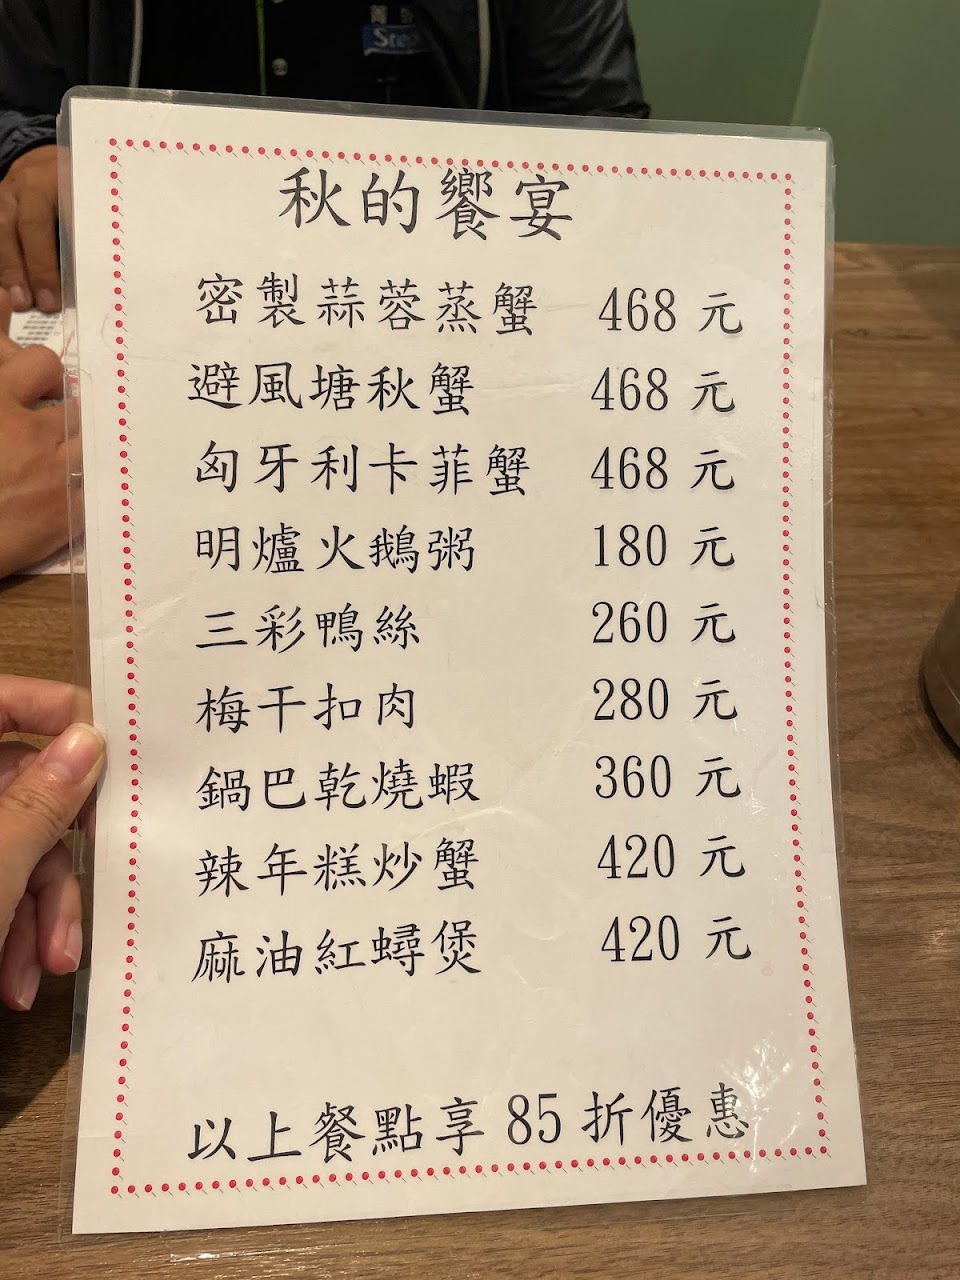 秋的饗宴
密製蒜蓉蒸蟹 468 元
避風塘秋蟹 468 元
匈牙利卡菲蟹 468 元
明爐火鵝粥 180 元
三彩鴨絲 260 元
梅干扣肉 280 元
鍋巴乾燒蝦 360 元
辣年糕炒蟹 420 元
麻油紅蟳煲 420 元
以上餐點享 85 折優惠